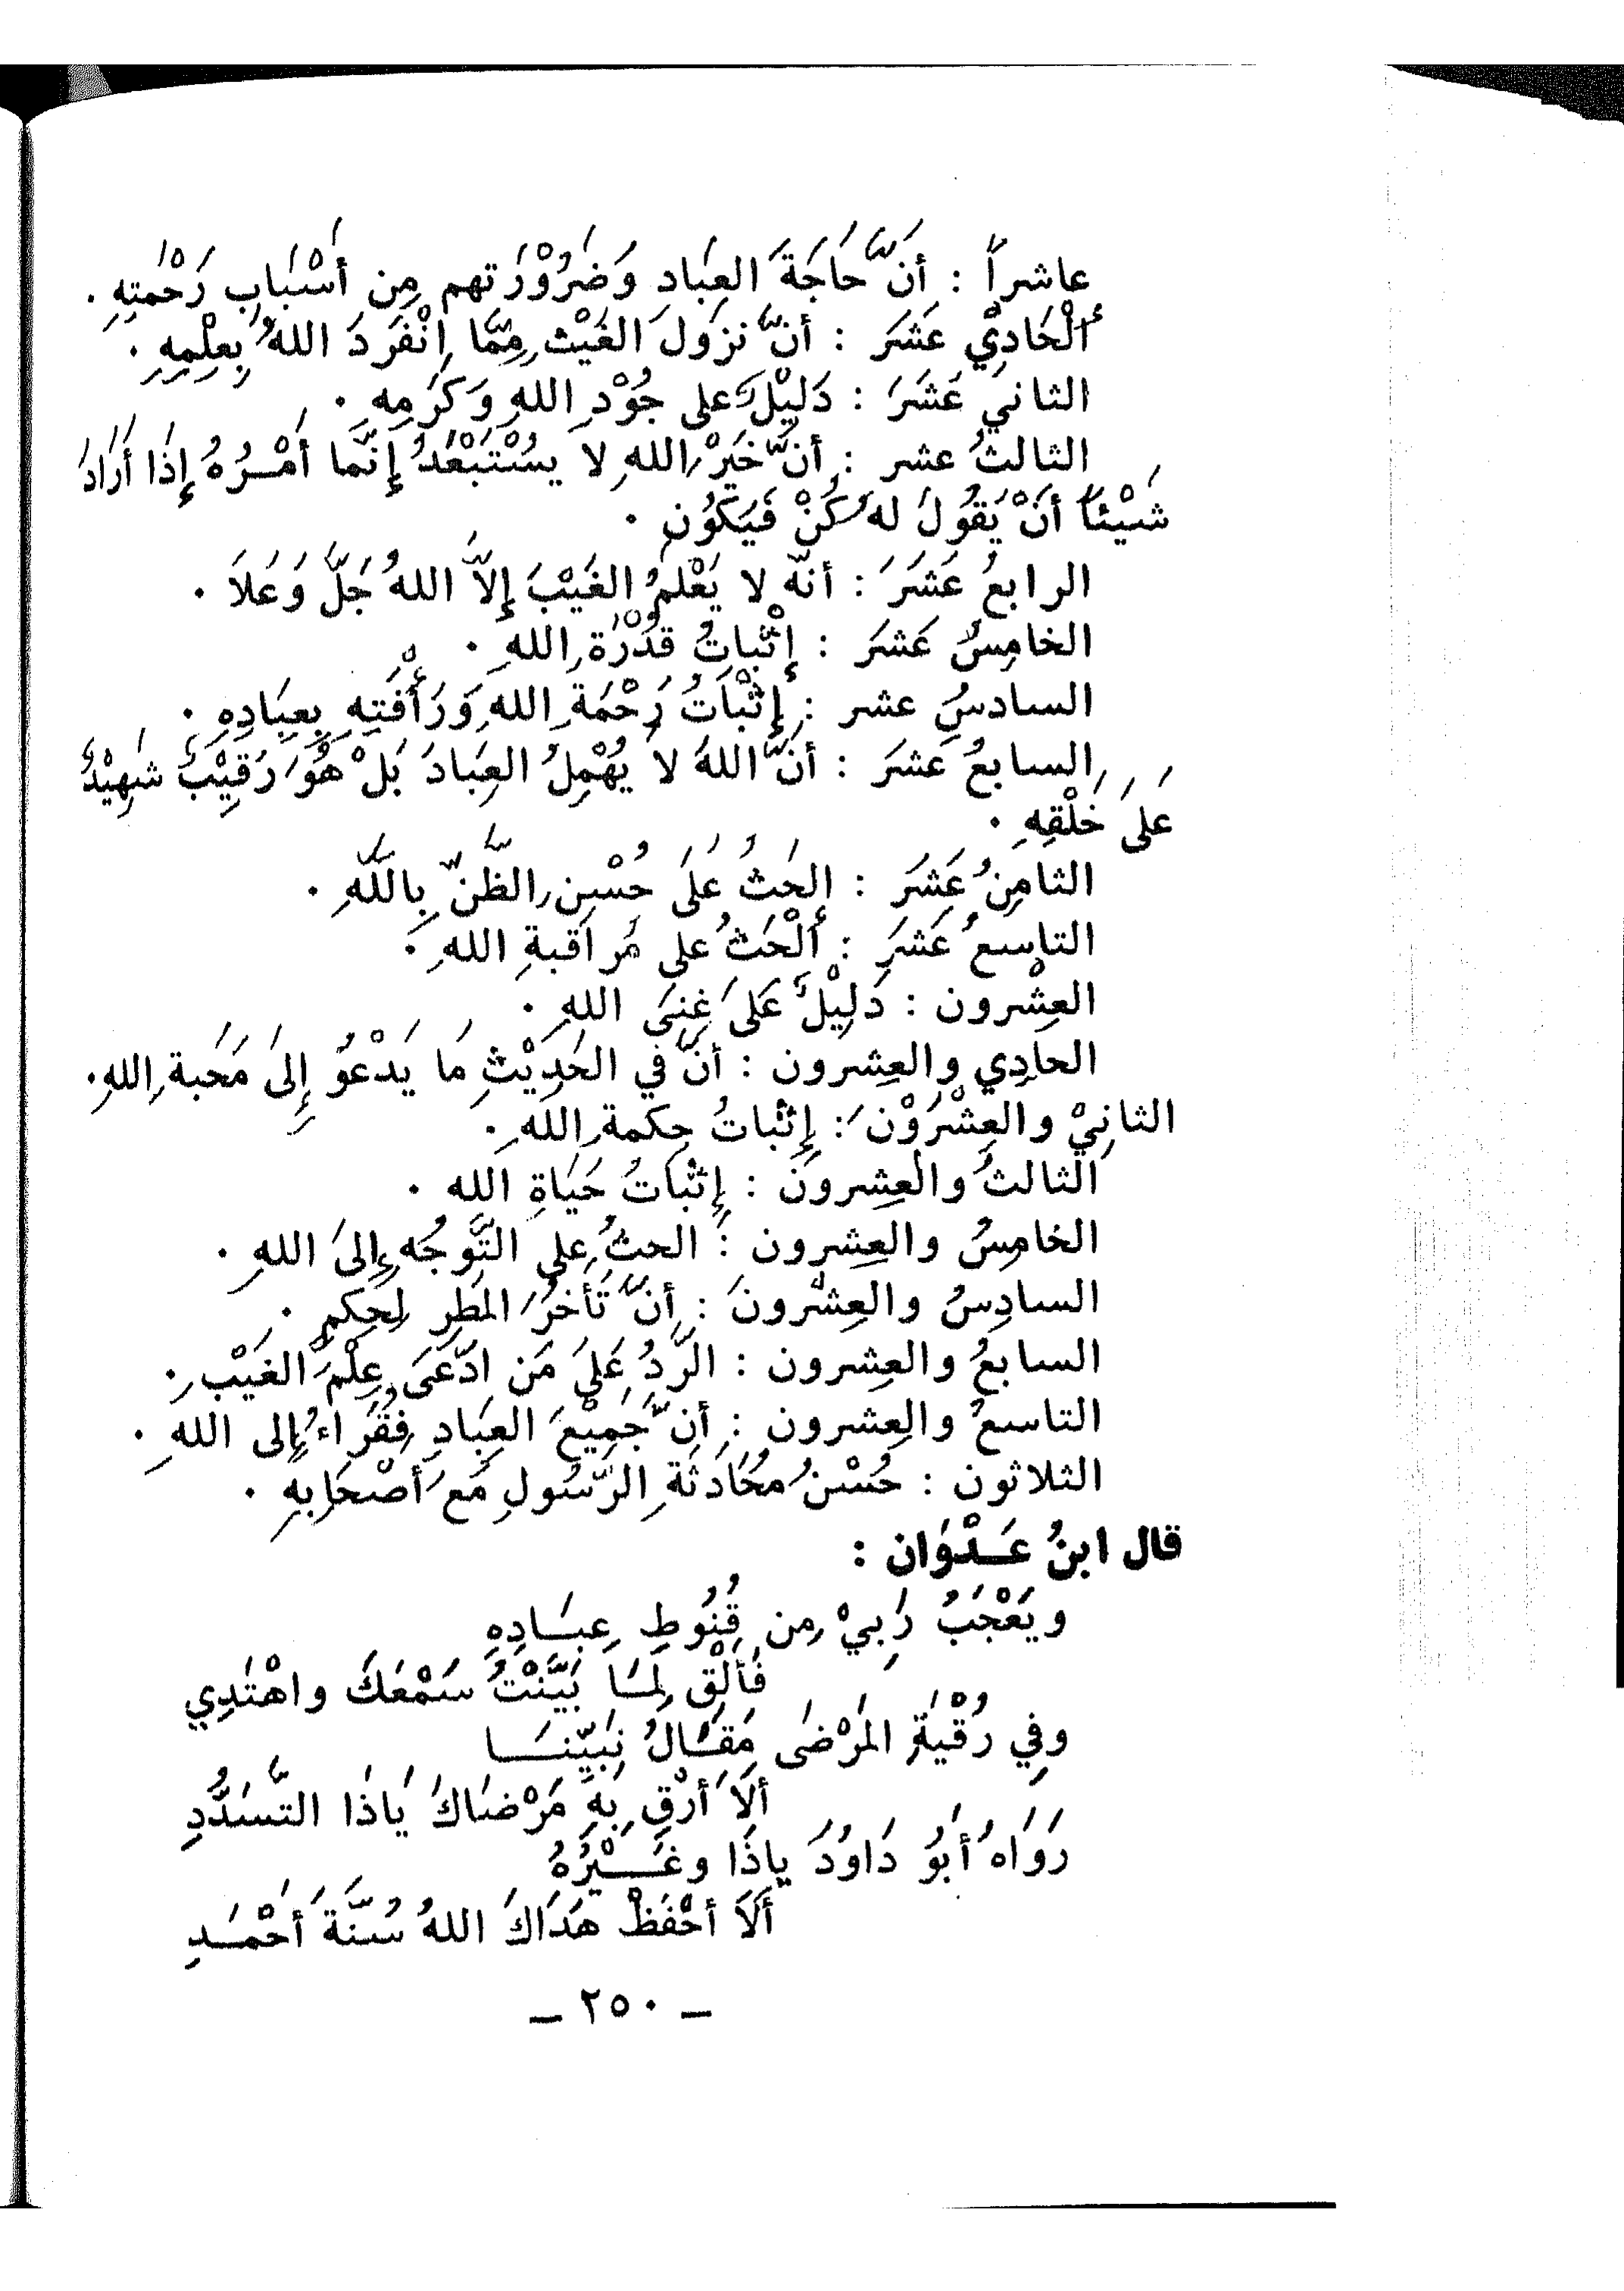 عاشراً : أَنَّ حَاجَةَ العِبَادِ وَضَرُوْرَتهم مِن أَسْبَابِ رَحْمتِهِ .
أَلْحَادِيْ عَشَرَ : أَنَّ نزولَ الغَيْثِ مِمَّا اِنْفَرَدَ اللهُ بِعِلْمِهِ .
الثاني عَشَرَ : دَلِيْلٌ على جُوْدِ اللهِ وَكَرَمِهِ .
الثالثُ عشر : أَنَّ خَيْرَ اللهِ لا يسُتْتَبْعَدُ إِنَّمَا أَمْـرُهُ إِذَا أَرَادَ
شَيْئاً أَنْ يَقُوْلَ لهُ كُنْ فَيَكُوْن .
الرابعُ عَشَرَ : أنَّه لا يَعْلَمُ الغَيْبَ إِلاَّ اللهُ جَلَّ وَعَلاَ .
الخامِسُ عَشَرَ : إِثْباتُ قدْرَةِ اللهِ .
السادسُ عشر : إِثْبَاتُ رَحْمَةِ اللهِ وَرَأْفَتِهِ بِعِبَادِهِ .
السابعُ عَشَرَ : أَنَّ اللهَ لاَ يُهْمِلُ العِبَادَ بَلْ هُوَ رَقِيْبٌ شَهِيْدٌ
عَلَى خَلْقِهِ .
الثامِنُ عَشَرَ : اِلحَثُ عَلَى حُسْنِ الظَّنِّ بِاللَّهِ .
التاسعُ عَشَرَ : أَلْحَثُ على مُراقبةِ اللهِ .
العِشْرون : دَلِيْلٌ عَلَى غِنَى اللهِ .
الحادِي والعِشرون : أَنَّ في الحَدِيْثِ مَا يَدْعُوْ إِلىَ مَحَبة اللهِ .
الثانِيْ والعِشْرَوْنَ : إِثْباتُ حِكمة اللهِ .
الثالثُ والْعِشِرونَ : إِثْبَاتُ حَيَاةِ الله .
الخامِسُ والعِشِرون : الحثُ على التَّوَجُه إِلىَ اللهِ .
السادِسُ والعِشْرونَ : أَنَّ تَأَخُرَ المَطَرِ لِحِكمٍ .
السابعُ والعِشرون : الرَّدُ عَلَى مَن ادَّعَىَ عِلْمَ الغَيْبِ .
التاسعُ والعِشرون : أَنَّ جَمِيْعَ العِبَادِ فُقَرَاءُ إِلى اللهِ .
الثلاثون : حُسْنُ مُحَادَثَةِ الرَّسُولِ مَعَ أَصْحَابِهِ .
قال ابنُ عَـدْوَان :
ويَعْجَبُ رَبِيْ مِن قُنُوطِ عِبَـادِهِ
فَأَلْقِ لِمَـا بَيَّنْتُ سَمْعَكَ واهْتَدِي
وفِي رُقْيَةِ المَرْضَى مَقَـالُ نَبِيّنـا
أَلاَ أَرْقِ بِهِ مَرْضَاكَ يَاذَا التَّسَدُّدِ
رَوَاهُ أَبُوْ دَاوُدَ يَاذَا وغَـيْرُهُ
أَلاَ أَحْفَظْ هَدَاكَ اللهُ سُنَّةَ أَحْمَـدِ
ــ ٢٥٠ ــ